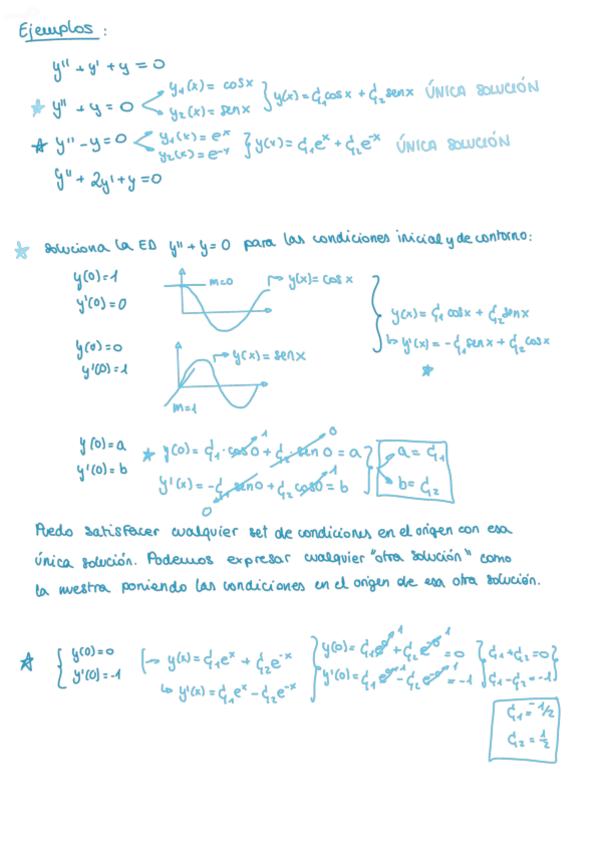 Ejemplos:
y'' + y' + y = 0
☆ y'' + y = 0 < y₁(x) = cosx y₂(x) = senx } y(x) = C₁cosx + C₂senx ÚNICA SOLUCIÓN
☆ y'' - y = 0 < y₁(x) = eˣ y₂(x) = e⁻ˣ } y(x) = C₁eˣ + C₂e⁻ˣ ÚNICA SOLUCIÓN
y'' + 2y' + y = 0
☆ Soluciona la ED y'' + y = 0 para las condiciones inicial y de contorno:
y(0) = 1
y'(0) = 0
m=0
y(x) = cos x
y(x) = C₁cosx + C₂senx
y'(x) = -C₁senx + C₂cosx
☆
y(0) = 0
y'(0) = 1
y(x) = senx
m=1
y(0) = a
y'(0) = b
☆ y(0) = C₁·cos0 1 + C₂·sen0 0 = a
y'(x) = -C₁sen0 0 + C₂cos0 1 = b
a = C₁
b = C₂
Puedo satisfacer cualquier set de condiciones en el origen con esa
única solución. Podemos expresar cualquier "otra solución" como
la nuestra poniendo las condiciones en el origen de esa otra solución.
☆ { y(0) = 0
y'(0) = -1
y(x) = C₁eˣ + C₂e⁻ˣ
y'(x) = C₁eˣ - C₂e⁻ˣ
y(0) = C₁e⁰ 1 + C₂e⁻⁰ 1 = 0
y'(0) = C₁e⁰ 1 - C₂e⁻⁰ 1 = -1
C₁ + C₂ = 0
C₁ - C₂ = -1
C₁ = -1/2
C₂ = 1/2